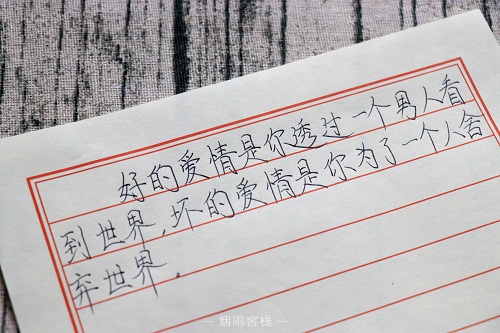 好的爱情是你透过一个男人看
到世界,坏的爱情是你为了一个人舍
弃世界。
— 烟雨客栈 —